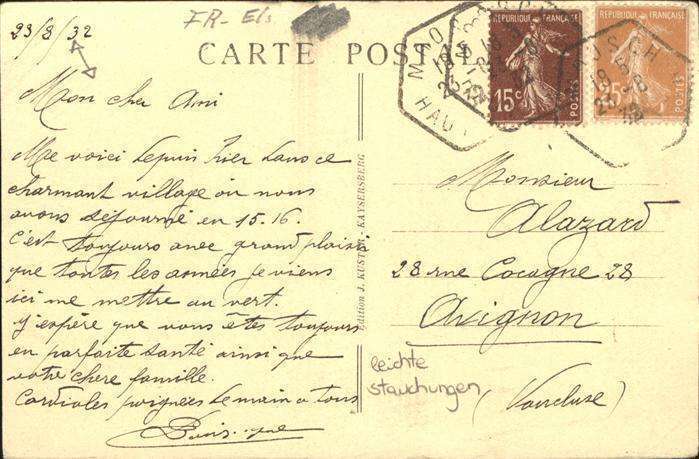 23/8/32
FR- Els
CARTE POSTALE
RÉPUBLIQUE FRANÇAISE
15c
POSTES
RÉPUBLIQUE FRANÇAISE
25c
POSTES
Mon cher Ami
Me voici depuis hier dans ce
charmant village où nous
avons séjourné en 15.16.
C'est toujours avec grand plaisir
que toutes les années je viens
ici me mettre au vert.
J'espère que vous êtes toujours
en parfaite santé ainsi que
votre chere famille.
Cordiales poignées de main a tous
Edition J. KUSTER - KAYSERSBERG
Monsieur
Alazard
28 rue Cocagne 28
Avignon
(Vaucluse)
leichte
stauchungen